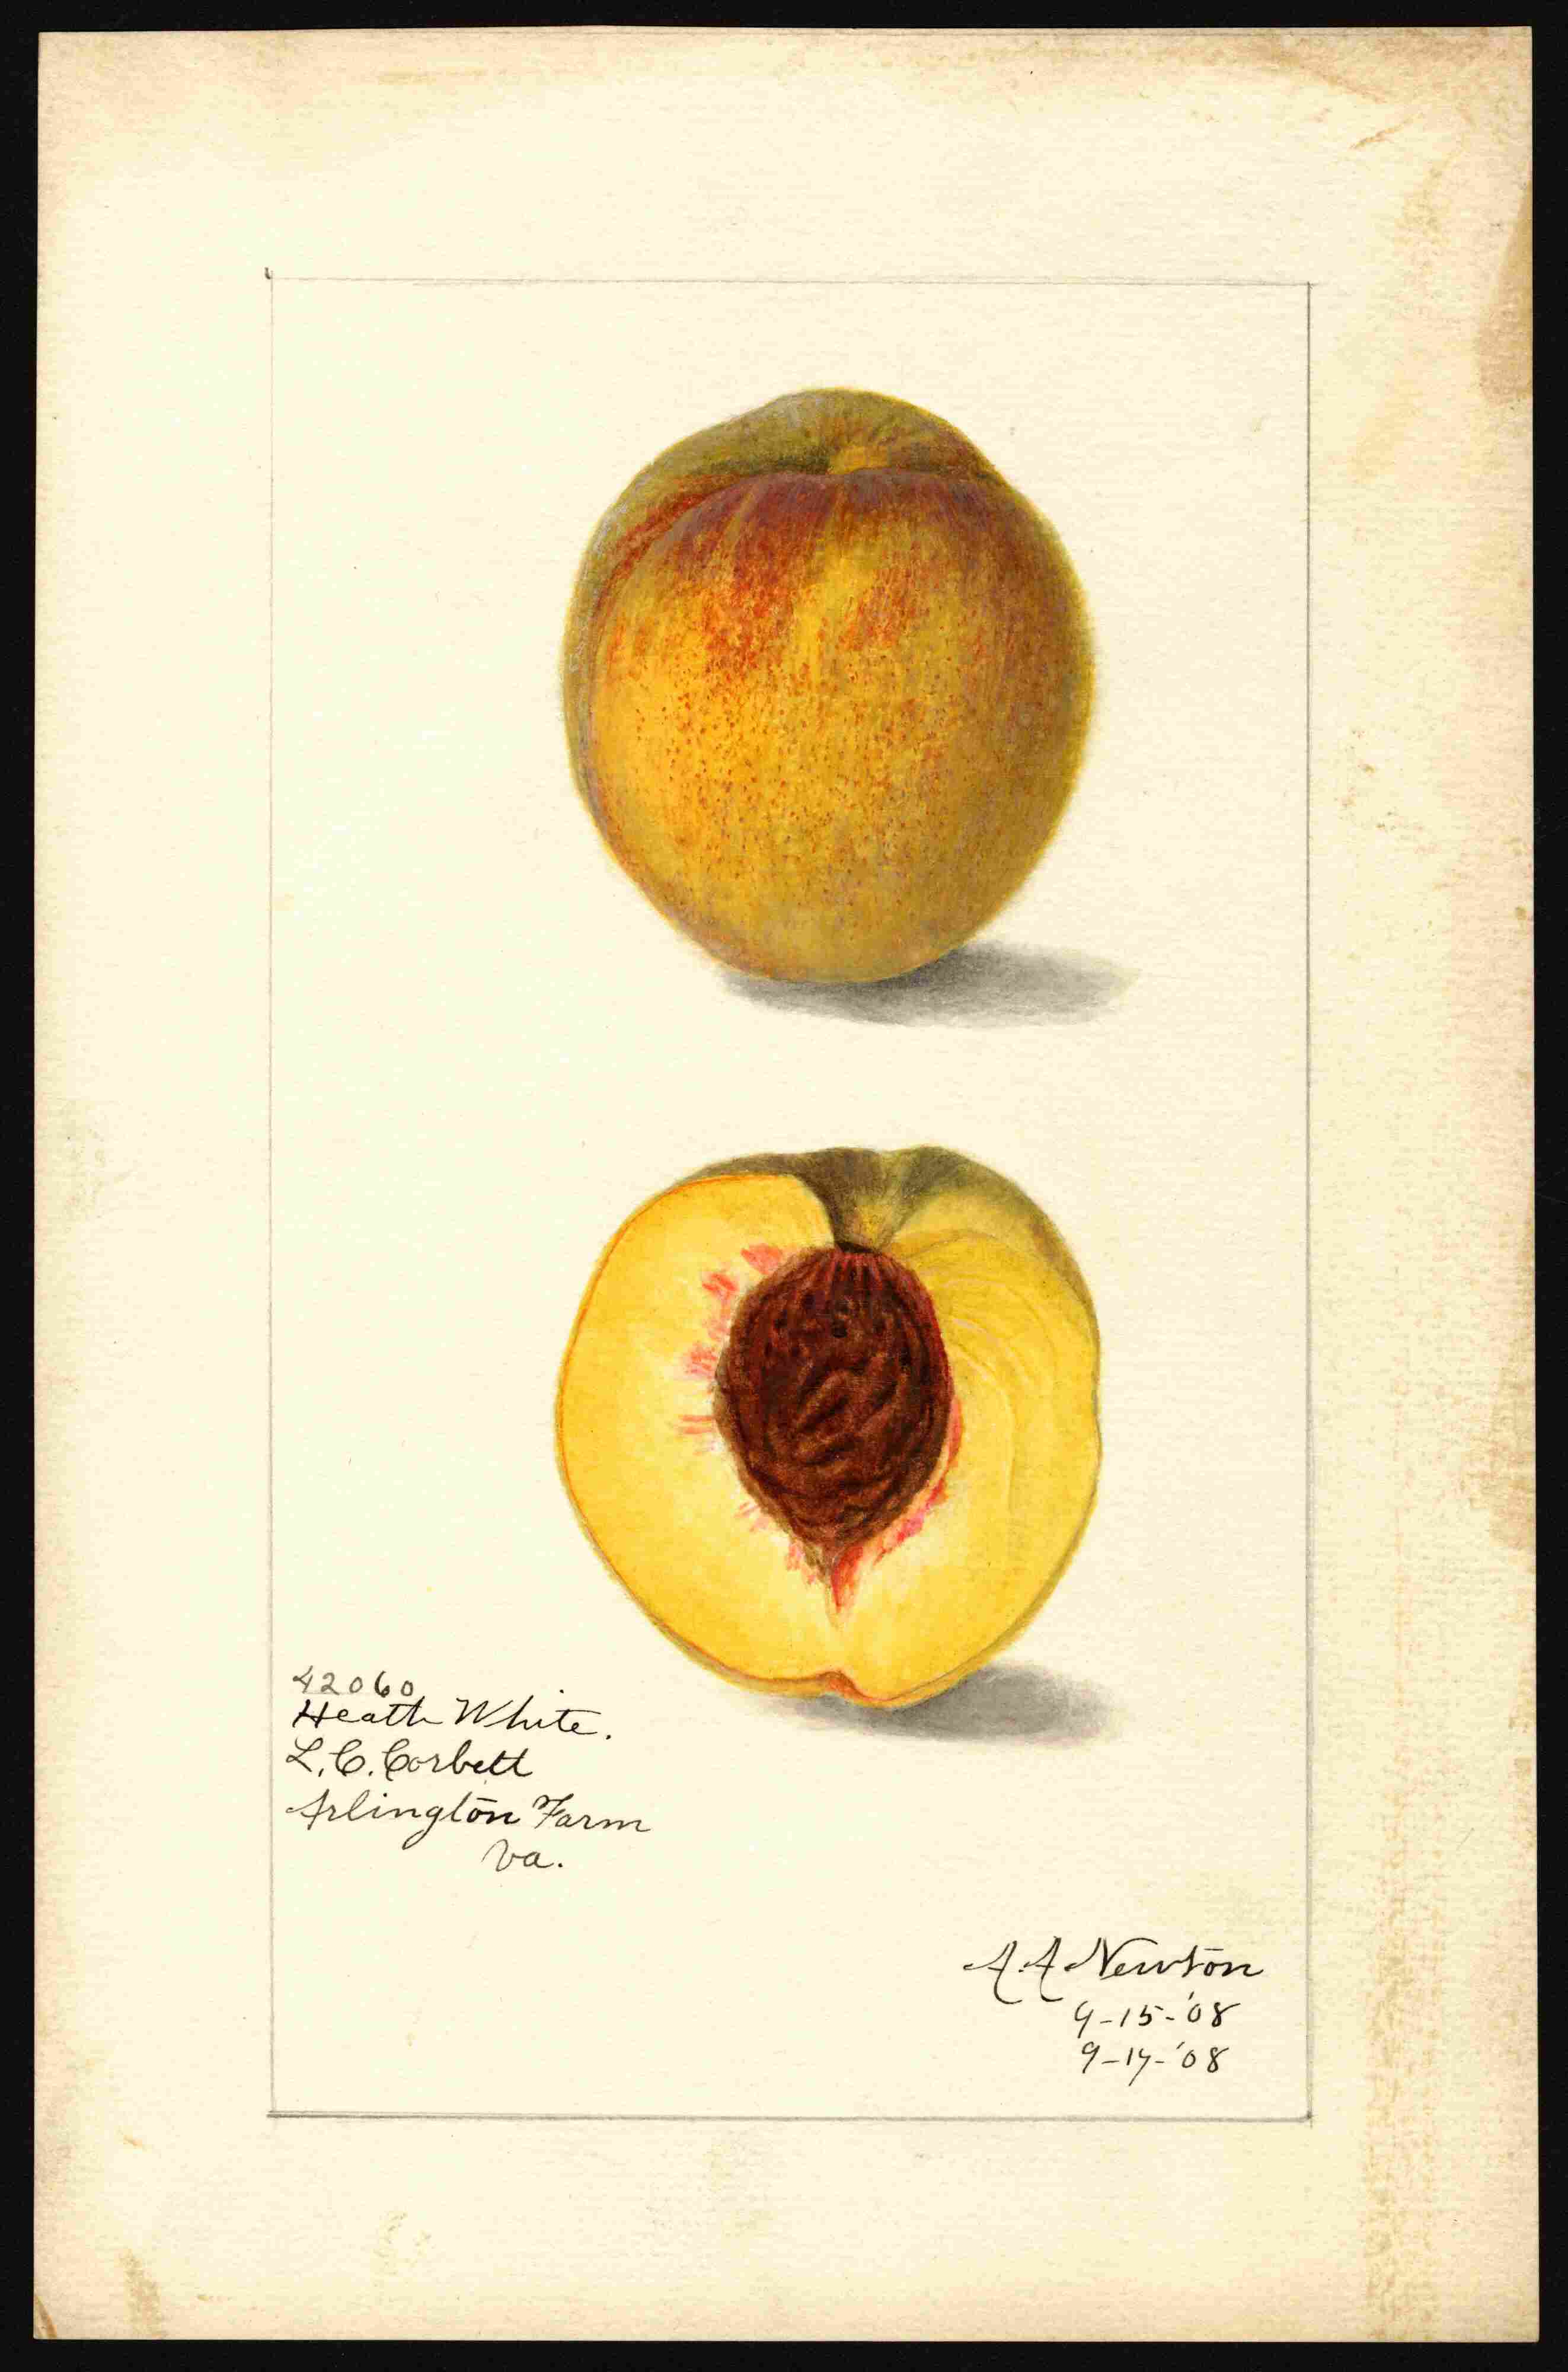 42060
Heath White.
L. C. Corbett
Arlington Farm
Va.
A. A. Newton
9-15-'08
9-17-'08